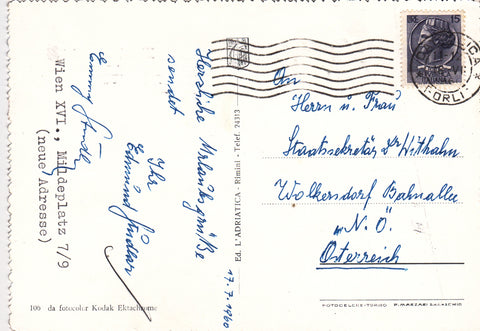 Herzliche Urlaubsgrüße
sendet
Ihr
Edmund Sindlar
Emmy Sindlar
Wien XVI., Mildeplatz 7/9
(neue Adresse)
17.7.1960
106 da fotocolor Kodak Ektachrome
Ed. L'ADRIATICA - Rimini - Telef. 24313
LIRE 15
FORLI
An
Herrn u. Frau
Staatssekretär Dr Withalm
Wolkersdorf Bahnallee
N. Ö.
Österreich
FOTOCELCHE-TORINO